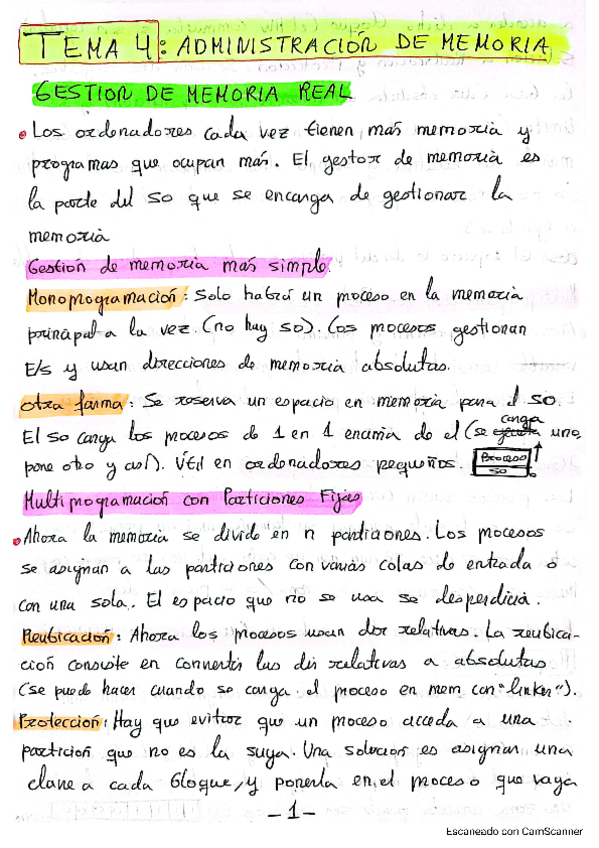 TEMA 4: ADMINISTRACIÓN DE MEMORIA
GESTION DE MEMORIA REAL
• Los ordenadores cada vez tienen más memoria y
programas que ocupan más. El gestor de memoria es
la parte del SO que se encarga de gestionar la
memoria
Gestión de memoria más simple
Monoprogramación: Solo habrá un proceso en la memoria
principal a la vez (no hay SO). Los procesos gestionan
E/S y usan direcciones de memoria absolutas.
Otra forma: Se reserva un espacio en memoria para el SO
carga
El SO carga los procesos de 1 en 1 encima de el (se ejecuta uno,
pone otro y así). Útil en ordenadores pequeños.
Proceso
SO
0
Multiprogramación con Particiones Fijas
• Ahora la memoria se divide en n particiones. Los procesos
se asignan a las particiones con varias colas de entrada o
con una sola. El espacio que no se usa se desperdicia.
Reubicación: Ahora los procesos usan dir relativas. La reubica-
ción consiste en convertir las dir relativas a absolutas
(se puede hacer cuando se carga el proceso en mem con "linker").
Protección: Hay que evitar que un proceso acceda a una
partición que no es la suya. Una solución es asignar una
clave a cada bloque, y ponerla en el proceso que vaya
-1-
Escaneado con CamScanner